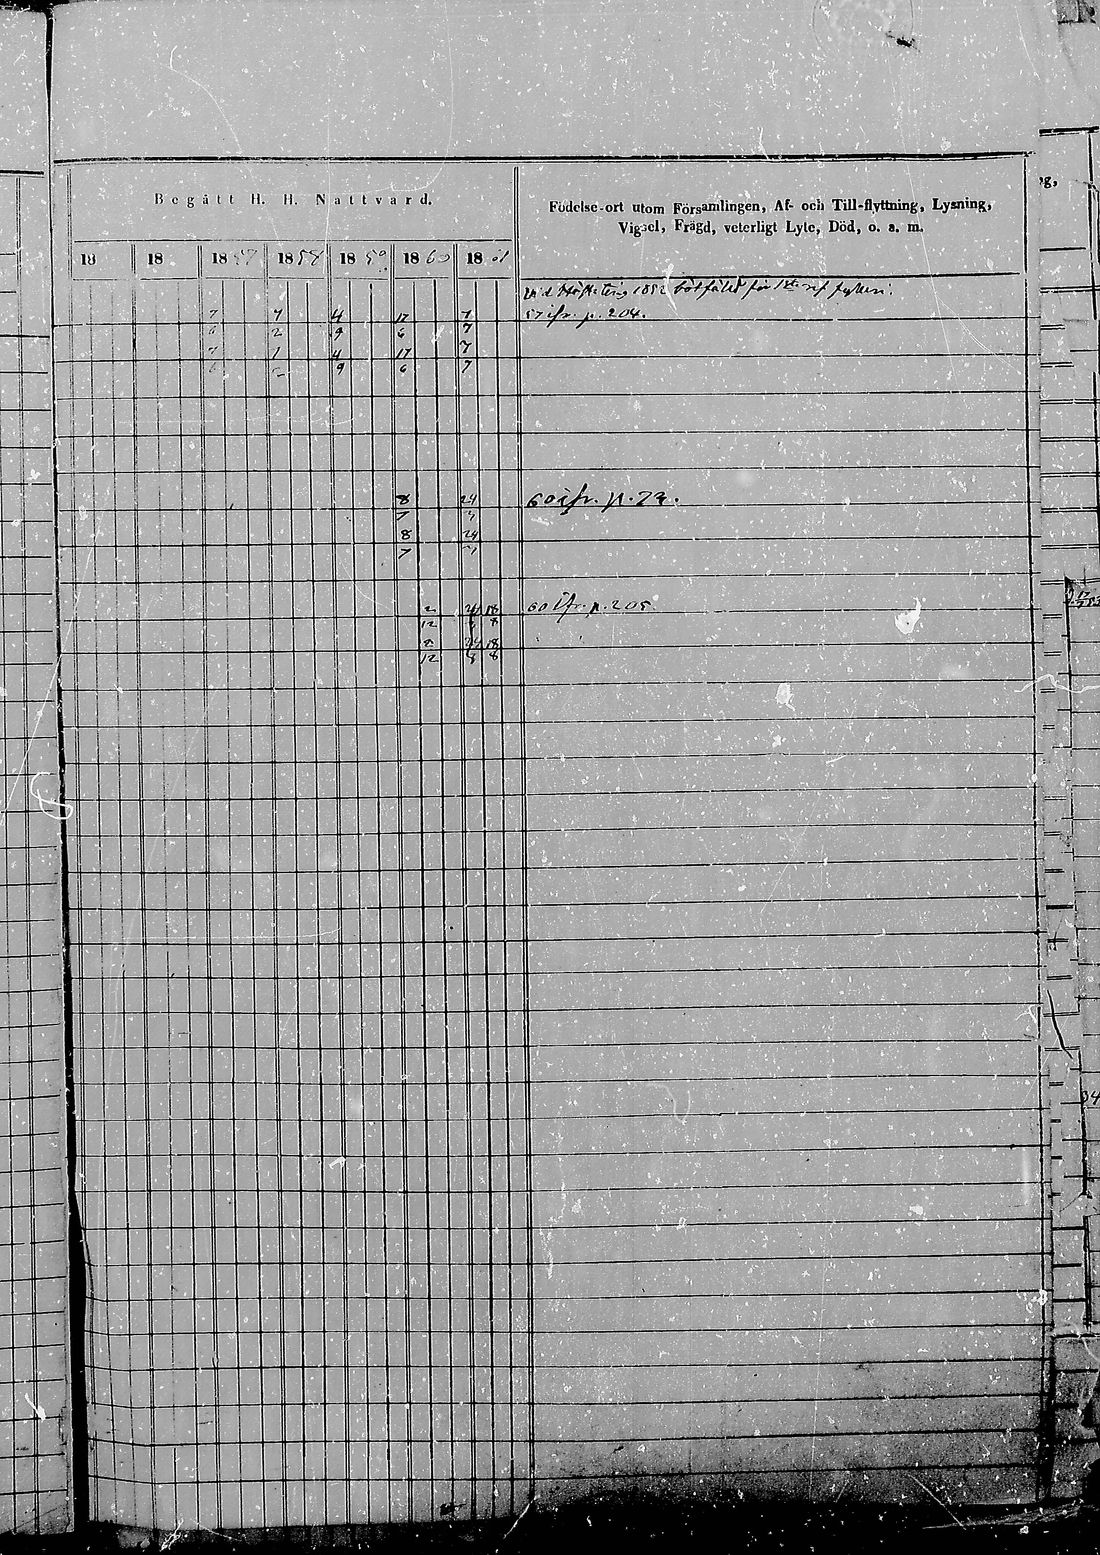 Begått H. H. Nattvard.
Födelse-ort utom Församlingen, Af- och Till-flyttning, Lysning,
Vigsel, Frägd, veterligt Lyte, Död, o. s. m.
18 18 1857 1858 1859 1860 1861
1852 botfäld för 1sta
7 7 4 17 7 57 ifr. p. 204.
6 2 9 6 7
7 1 4 17 7
6 2 9 6 7
8 24 60 ifr. p. 73.
7
8 24
7
2 24 18 60 ifr. p. 205.
12 8
24 18
12 8